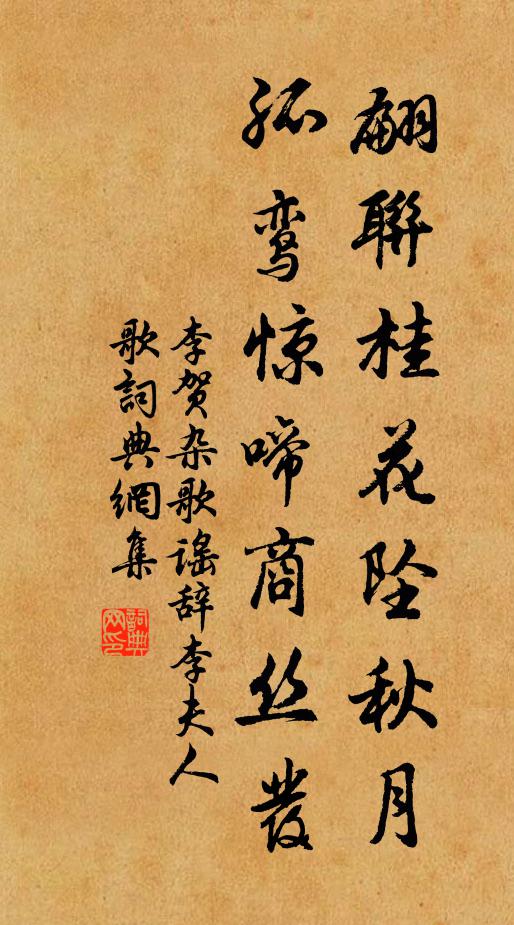 翩聯桂花坠秋月
孤鸾惊啼商丝發
李贺杂歌谣辞李夫人
歌詞典網集
詞典网印